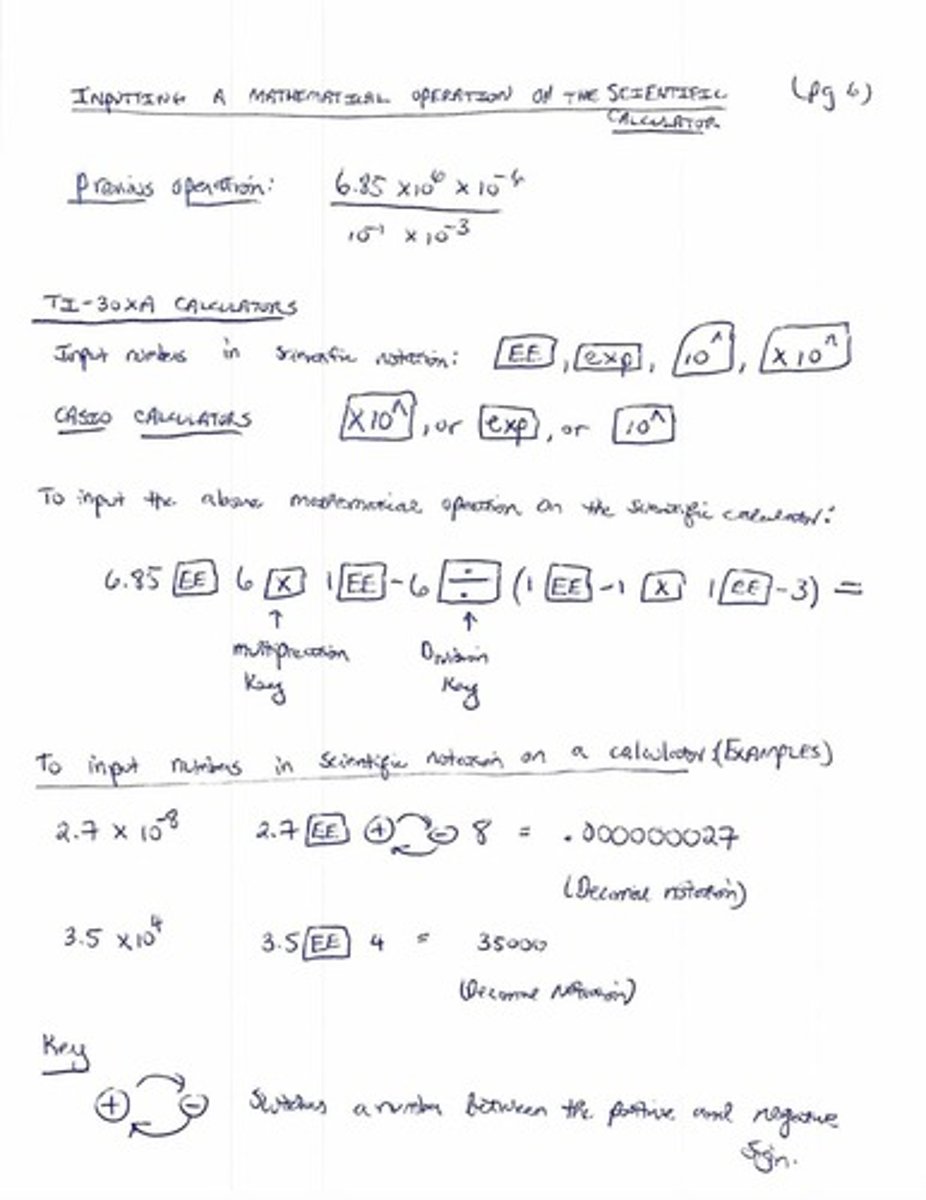 INPUTTING A MATHEMATICAL OPERATION ON THE SCIENTIFIC CALCULATOR (pg 6)
Previous operation: 6.85 x10⁶ x 10⁻⁶
10⁻¹ x 10⁻³
TI-30XA CALCULATORS
Input numbers in scientific notation: EE, exp, 10^, x10ⁿ
CASIO CALCULATORS X10^, or exp, or 10^
To input the above mathematical operation on the scientific calculator:
6.85 EE 6 x 1 EE -6 ÷ (1 EE -1 x 1 EE -3) =
↑ ↑
multiplication Division
Key Key
To input numbers in scientific notation on a calculator (EXAMPLES)
2.7 x 10⁻⁸ 2.7 EE + - 8 = .000000027
(Decimal notation)
3.5 x10⁴ 3.5 EE 4 = 35000
(Decimal Notation)
Key
+ - Switches a number between the positive and negative
sign.